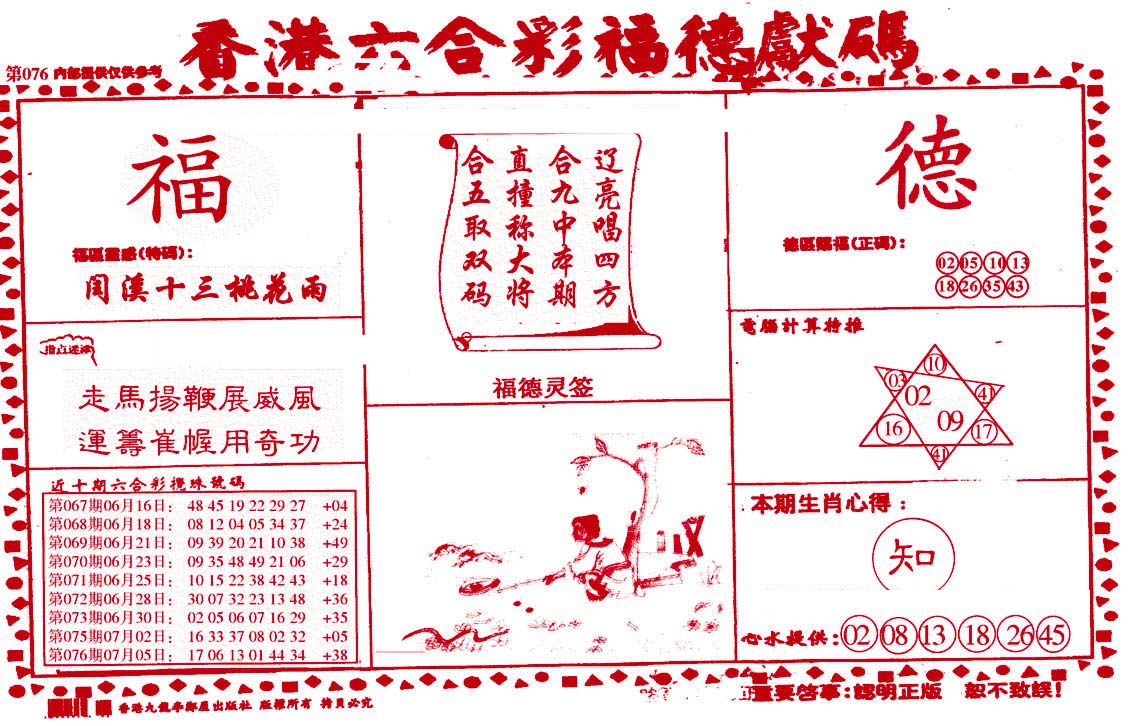 香港六合彩福德獻碼
第076 內部提供仅供參考
福
福區靈感(特碼):
閃溪十三桃花雨
指点迷津
走馬揚鞭展威風
運籌崔幄用奇功
近十期六合彩攪珠號碼
第067期06月16日: 48 45 19 22 29 27 +04
第068期06月18日: 08 12 04 05 34 37 +24
第069期06月21日: 09 39 20 21 10 38 +49
第070期06月23日: 09 35 48 49 21 06 +29
第071期06月25日: 10 15 22 38 42 43 +18
第072期06月28日: 30 07 32 23 13 48 +36
第073期06月30日: 02 05 06 07 16 29 +35
第075期07月02日: 16 33 37 08 02 32 +05
第076期07月05日: 17 06 13 01 44 34 +38
辽亮唱四方
合九中本期
直撞称大将
合五取双码
福德灵签
德
德區賜福(正碼):
02 05 10 13
18 26 35 43
電腦計算特推
10
03 02 41
16 09 17
41
本期生肖心得:
知
心水提供: 02 08 13 18 26 45
重要啓事:認明正版 恕不致誤!
版權所有 拷貝必究